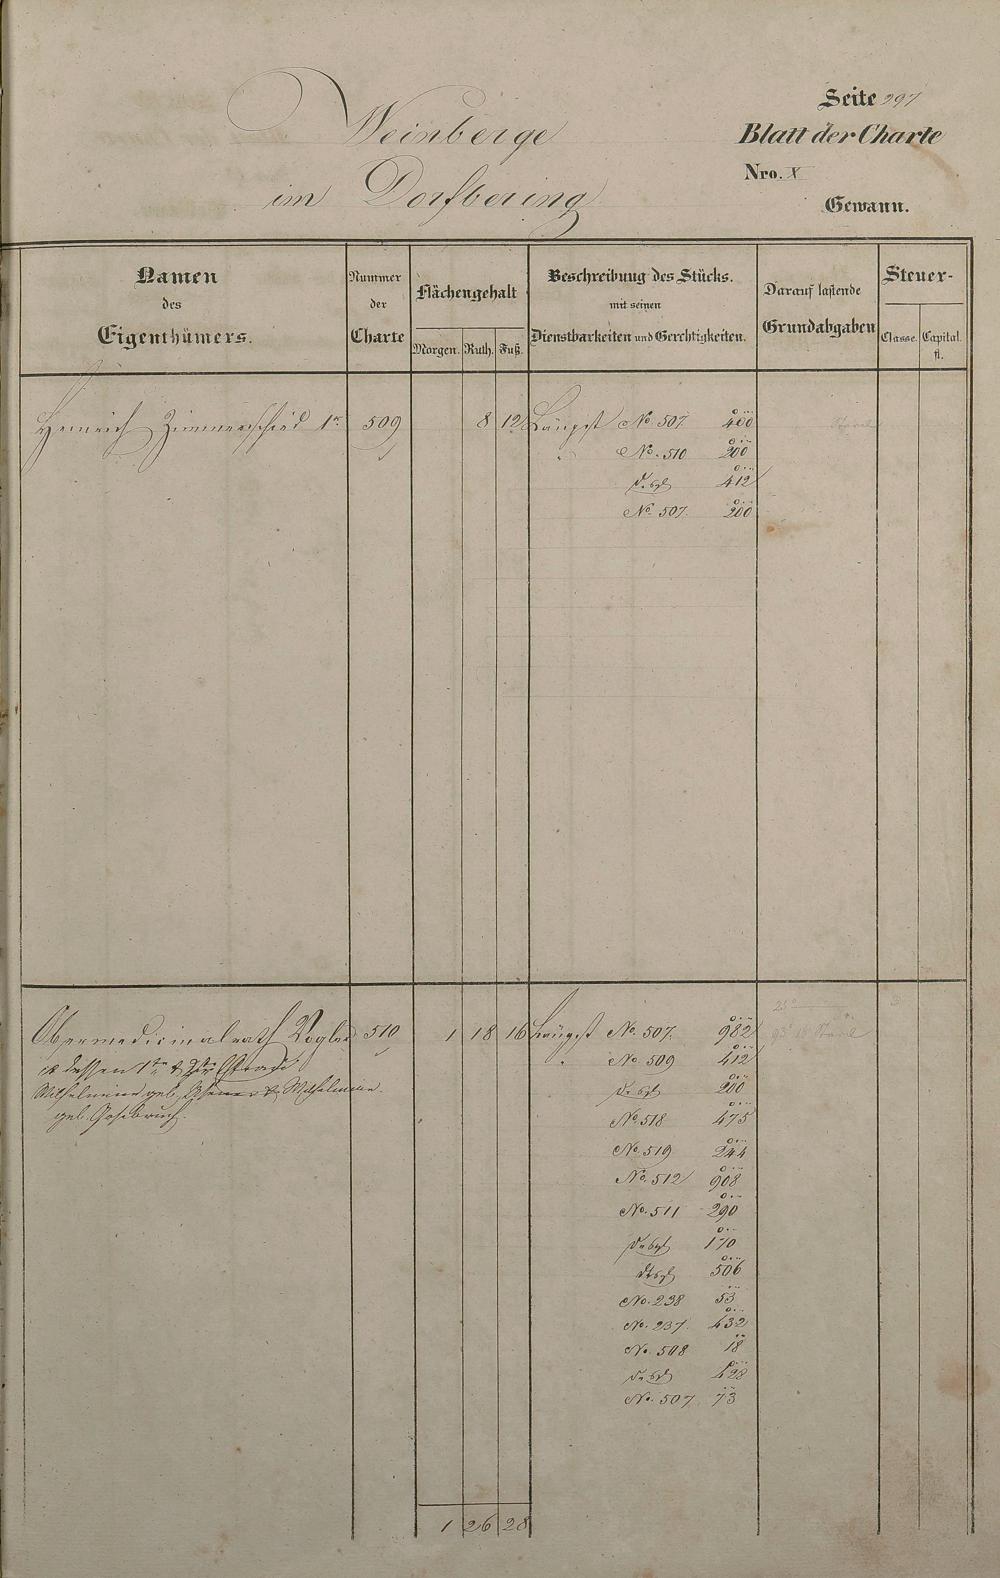 Seite 297
Weinberge
Blatt der Charte
im Dorfbering
Nro. X
Gewann.
Namen des Eigenthümers.
Nummer der Charte
Flächengehalt
Morgen. Ruth. Fuß.
Beschreibung des Stücks.
mit seinen
Dienstbarkeiten und Gerechtigkeiten.
Darauf lastende
Grundabgaben
Steuer-
Classe. Capital.
fl.
Heinrich Zimmerschied 1r 509 8 12 Längst No. 507. 400
" No. 510 200
desgl 412
No. 507. 200
Obermedicinalrath Vogler 510 1 18 16 Längst No. 507. 982
" No. 509 412
desgl 200
Wilhelmine geb. & Wilhelmine
geb.
No. 518 475
No. 519 244
No. 512 908
No. 511 290
desgl 170
desgl 506
No. 238 53
No. 237. 432
No. 508 18
desgl 428
No. 507 73
1 26 28